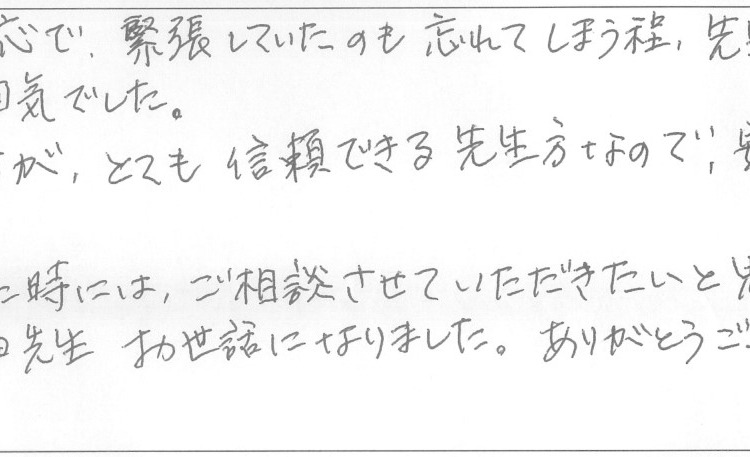 応で、緊張していたのも忘れてしまう程、先
気でした。
が、とても信頼できる先生方なので、
た時には、ご相談させていただきたいと
先生 お世話になりました。ありがとうご